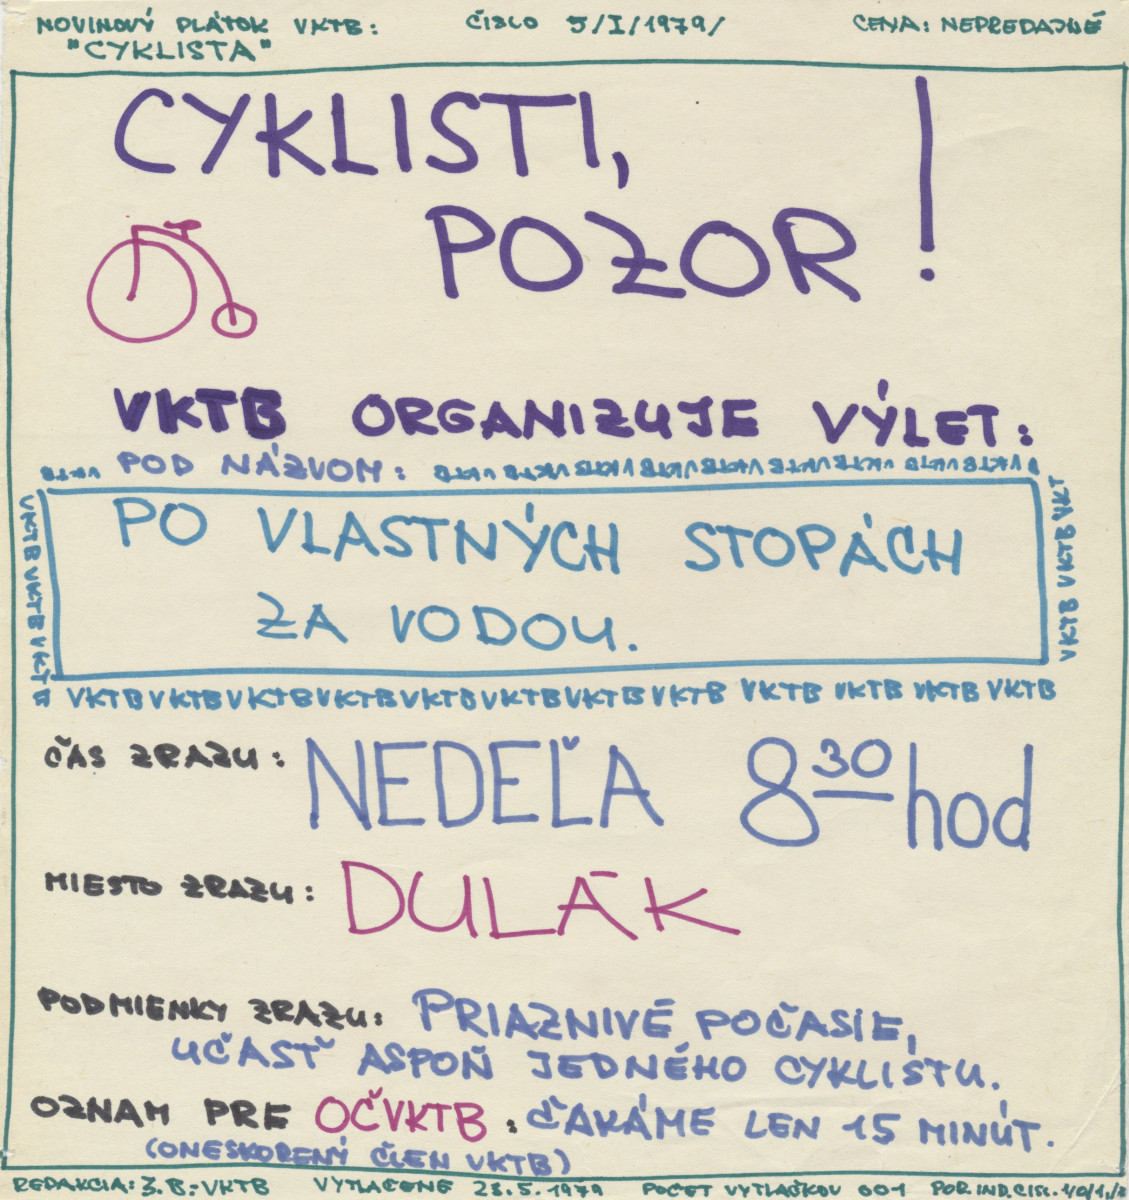 NOVINOVÝ PLÁTOK VKTB: ČÍSLO 5/I/1979/ CENA: NEPREDAJNÉ
"CYKLISTA"
CYKLISTI,
POZOR!
VKTB ORGANIZUJE VÝLET:
VKTB POD NÁZVOM: VKTB VKTB VKTB VKTB VKTB VKTB VKTB VKTB
PO VLASTNÝCH STOPÁCH
ZA VODOU.
VKTB VKTB VKTB
VKTB VKTB VKT
VKTB VKTB VKTB VKTB VKTB VKTB VKTB VKTB VKTB VKTB VKTB VKTB
ČAS ZRAZU: NEDEĽA 8³⁰ hod
MIESTO ZRAZU: DULÁK
PODMIENKY ZRAZU: PRIAZNIVÉ POČASIE,
UČASŤ ASPOŇ JEDNÉHO CYKLISTU.
OZNAM PRE OČVKTB: ČAKÁME LEN 15 MINÚT.
(ONESKORENÝ ČLEN VKTB)
REDAKCIA: Z.B.-VKTB VYTLAČENÉ 28.5.1979 POČET VYTLAČKOV 001 POR.IND.CISL.